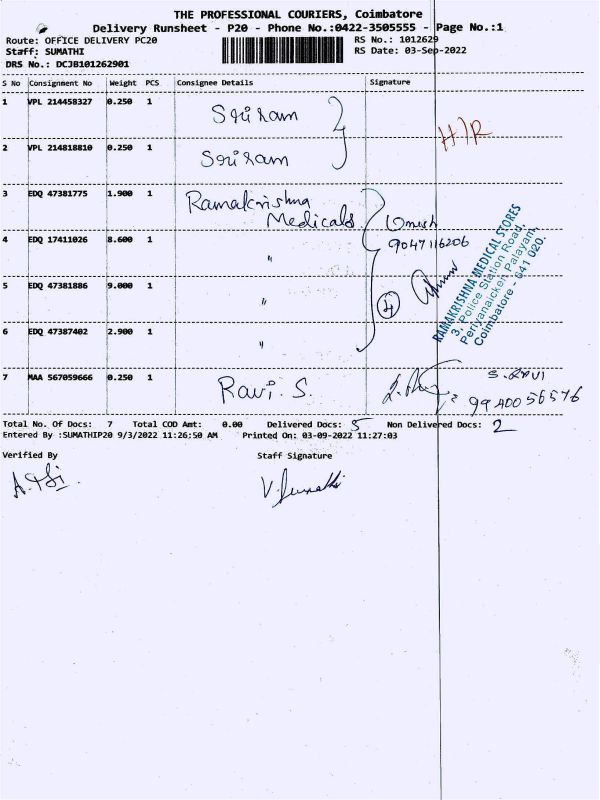 THE PROFESSIONAL COURIERS, Coimbatore
Delivery Runsheet - P20 - Phone No.:0422-3505555 - Page No.:1
Route: OFFICE DELIVERY PC20
RS No.: 1012629
Staff: SUMATHI
RS Date: 03-Sep-2022
DRS No.: DCJB101262901
S No Consignment No Weight PCS Consignee Details Signature
1 VPL 214458327 0.250 1 Sriram
H/R
2 VPL 214818810 0.250 1 Sriram
3 EDQ 47381775 1.900 1 Ramakrishna
Medicals Umesh
4 EDQ 17411026 8.600 1 " 9047116206
5 EDQ 47381886 9.000 1 " 4
6 EDQ 47387402 2.900 1 "
RAMAKRISHNA MEDICAL STORES
3, Police Station Road,
Periyanaicken Palayam,
Coimbatore - 641 020.
7 MAA 567059666 0.250 1 Ravi. S. S. RAVI
9940056576
Total No. Of Docs: 7 Total COD Amt: 0.00 Delivered Docs: 5 Non Delivered Docs: 2
Entered By :SUMATHIP20 9/3/2022 11:26:50 AM Printed On: 03-09-2022 11:27:03
Verified By Staff Signature
V. Sumathi